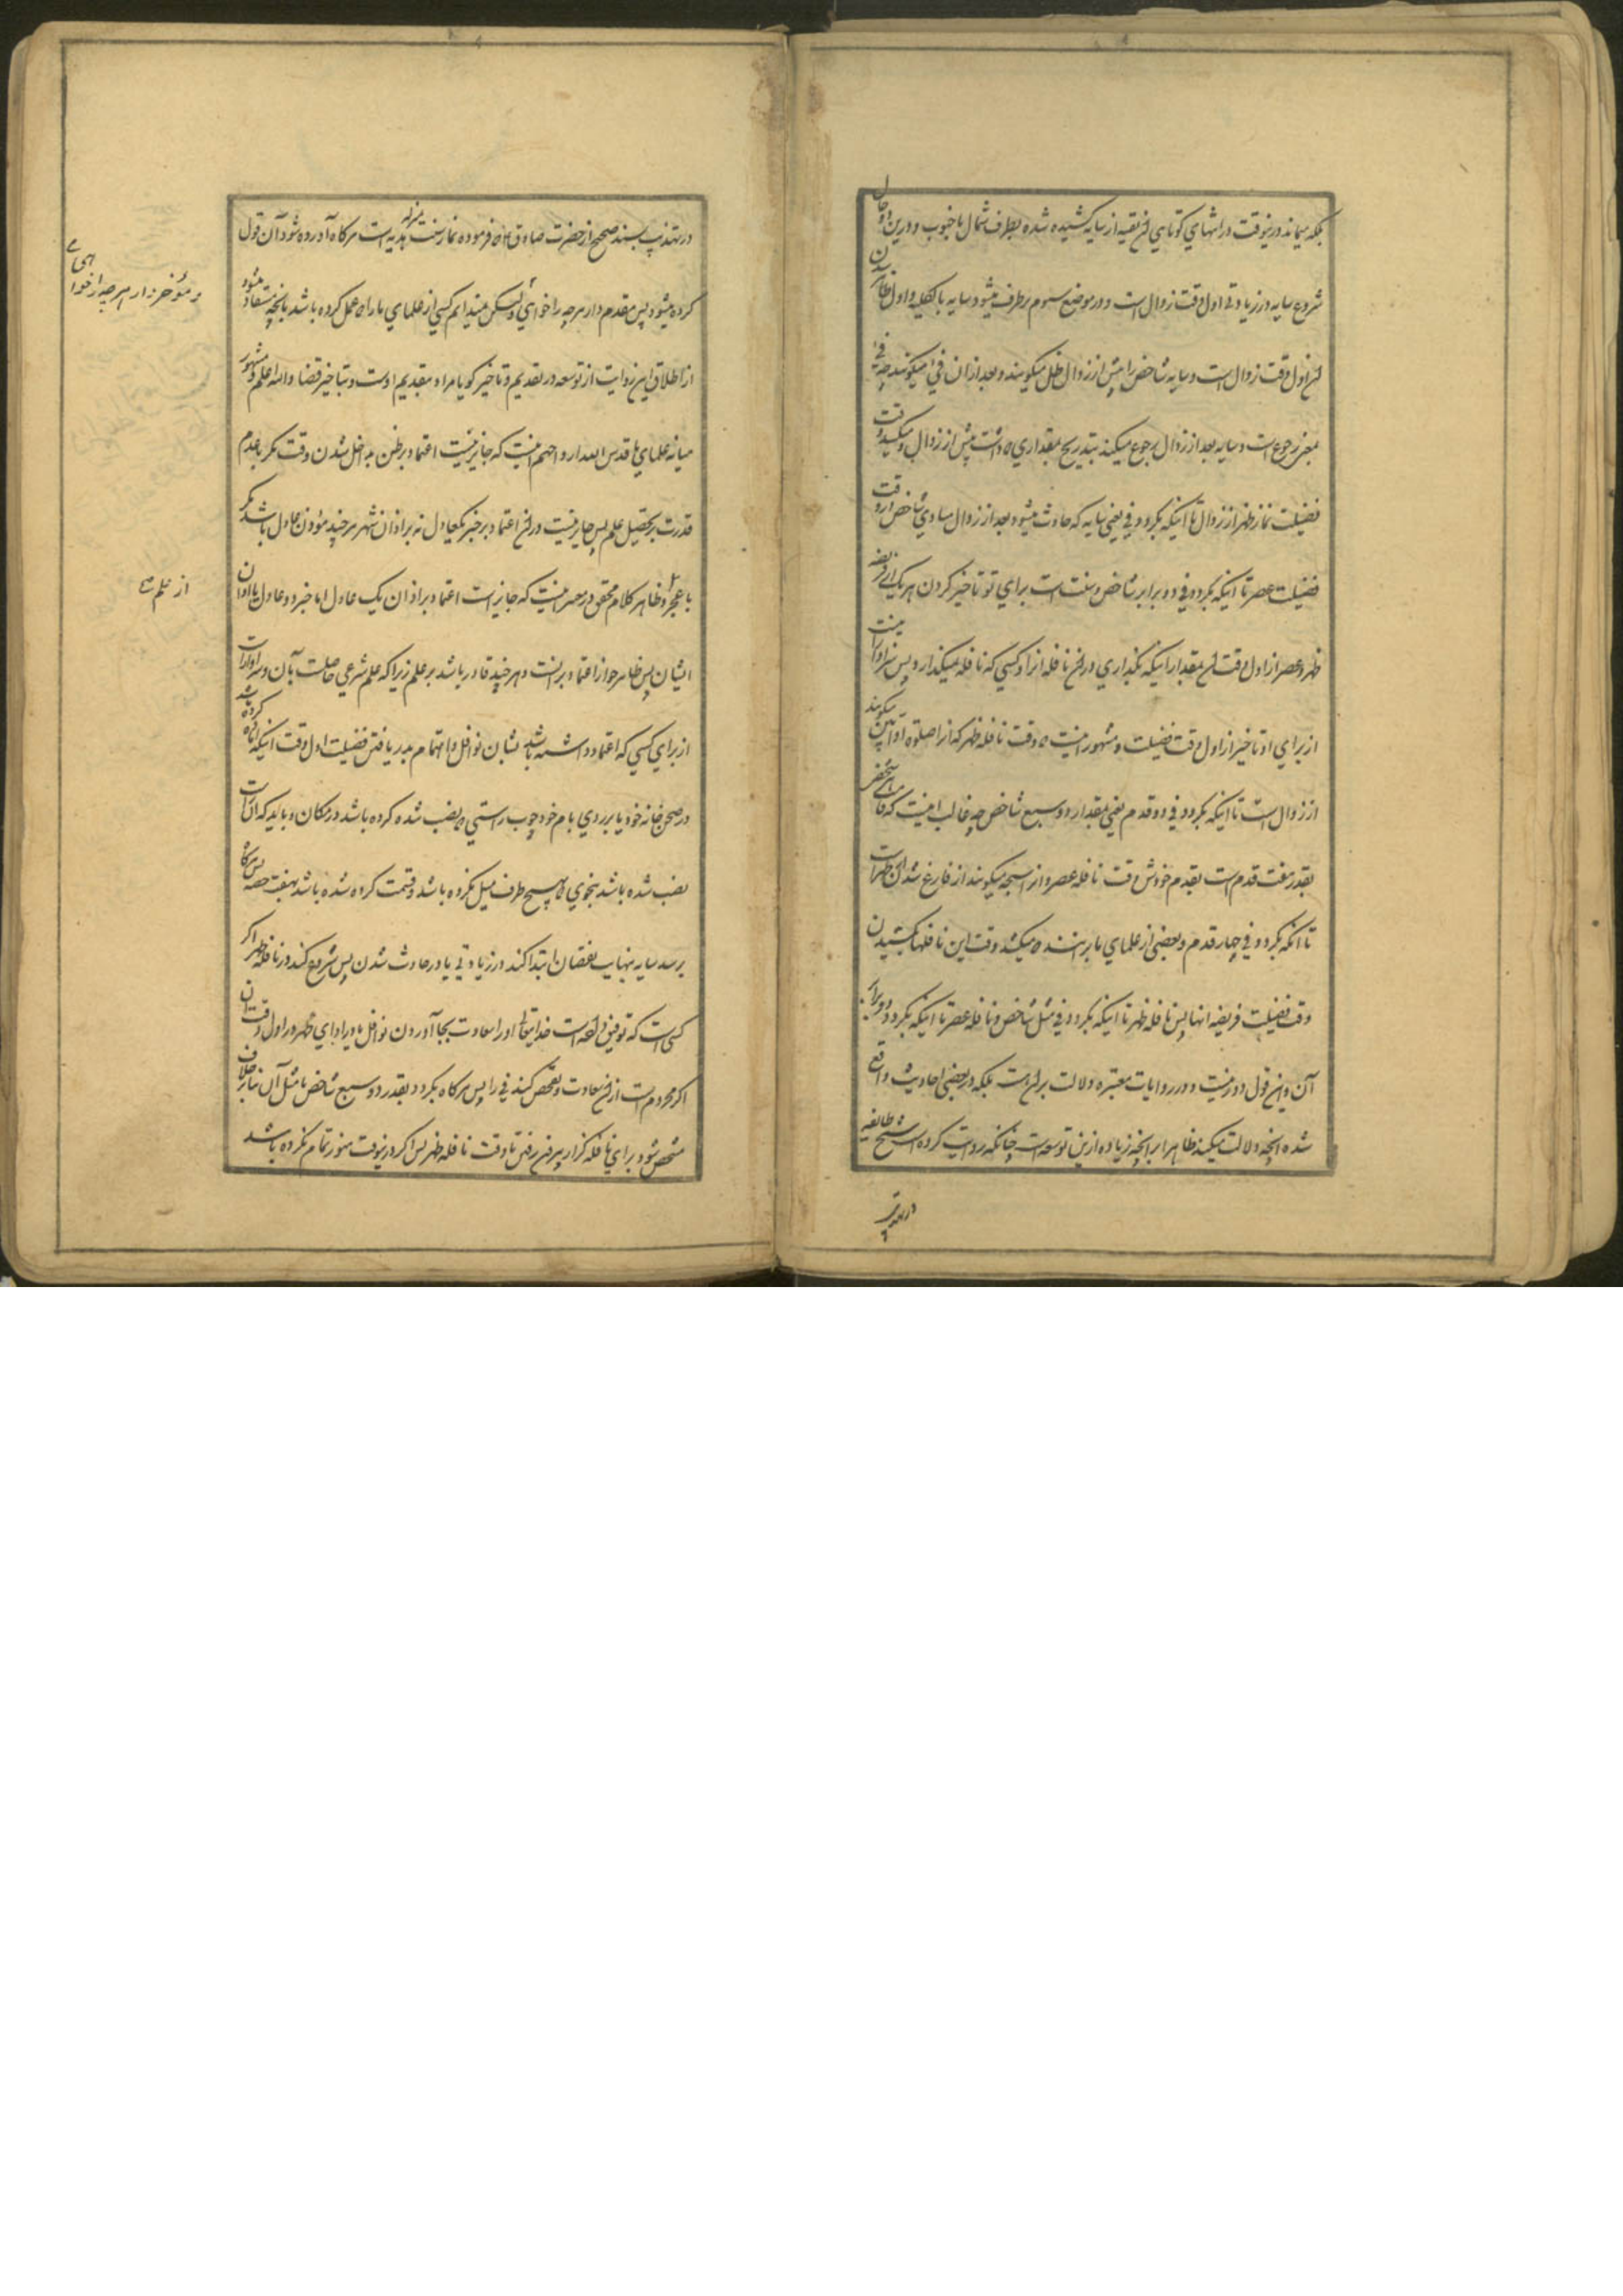 بلکه میماند درینوقت در انتهای کوتاهی آن بقیه از سایه کشیده شده بطرف شمال یا جنوب و درین دو حال
شروع سایه در زیادتی اول وقت زوال است و در موضع سوم برطرف میشود سایه بالکلیه و اول ظاهر شدن
آن اول وقت زوال است و سایه شاخص را پیش از زوال ظل میگویند و بعد از آن فی میگویند چه فی
بمعنی رجوع است و سایه بعد از زوال رجوع میکند بتدریج بمقداری که داشت پیش از زوال و میکشد وقت
فضیلت نماز ظهر از زوال تا اینکه بگردد فی یعنی سایه که حادث میشود بعد از زوال مساوی شاخص و وقت
فضیلت عصر تا اینکه بگردد فی دو برابر شاخص و سنت است برای تو تاخیر کردن هر یک از فریضه
ظهر و عصر از اول وقت آن بمقدار اینکه بگذاری در آن نافله آنرا و کسی که نافله نمیگذارد پس سزاوار نیست
از برای او تاخیر از اول وقت فضیلت و مشهور اینست که وقت نافله ظهر که آنرا صلوة اوابین میگویند
از زوال است تا اینکه بگردد فی دو قدم یعنی بمقدار دو سبع شاخص چه غالب اینست که قامت هر شخص
بقدر هفت قدم است بقدم خودش و وقت نافله عصر و آنرا سبحه میگویند از فارغ شدن از ظهر است
تا آنکه بگردد فی چهار قدم و بعضی از علمای ما برآنند که میکشد وقت این نافلها بکشیدن
وقت فضیلت فریضه آنها پس نافله ظهر تا اینکه بگردد فی مثل شاخص و نافله عصر تا اینکه بگردد دو برابر
آن و این قول دور نیست و در روایات معتبره دلالت بر آن هست بلکه در بعضی احادیث واقع
شده آنچه دلالت میکند ظاهرا بر آنچه زیاده ازین توسعه است چنانکه روایت کرده است شیخ طائفه
در تهذیب
در تهذیب بسند صحیح از حضرت صادق که فرموده نماز سنت بمنزله هدیه است هرگاه آورده شود آن قبول
کرده میشود پس مقدم دار هر چه را خواهی ولیکن میندانم کسی از علمای ما را که عمل کرده باشد بآنچه مستفاد میشود
و مؤخر دار هر چه را خواهی
از اطلاق این روایت از توسعه در تقدیم و تاخیر گویا مراد بتقدیم ادا است و بتاخیر قضا والله اعلم و مشهور
میانه علمای ما قدس الله ارواحهم اینست که جایز نیست اعتماد بر ظن بداخل شدن وقت مگر با عدم
قدرت بر تحصیل علم پس جایز نیست در آن اعتماد بر خبر یکعادل نه بر اذان شهر هر چند مؤذن عادل باشد مگر
با عجز از علم و ظاهر کلام محقق در معتبر اینست که جایز است اعتماد بر اذان یک عادل اما خبر دو عادل یا اذان
از علم
ایشان پس ظاهر جواز اعتماد بر آنست و هر چند قادر باشد بر علم زیرا که علم شرعی حاصلست بآن و سزاوار است
از برای کسی که اعتماد داشته باشد بشان نوافل و اهتمام بدریافتن فضیلت اول وقت اینکه ایستاده کرده باشد
در صحن خانه خود یا بر روی بام خود چوب راستی که نصب شده کرده باشد در مکان و باید که آن راست
نصب شده باشد بنحوی که بهیچ طرف میل نکرده باشد و قسمت کرده شده باشد بهفت حصه پس هرگاه
برسد سایه بنهایت نقصان ابتدا کند در زیادتی یا در حادث شدن پس شروع کند در نافله ظهر اگر
کسی است که توفیق داده است خدایتعالی او را سعادت بجا آوردن نوافل یا در ادای ظهر در اول وقت آن
اگر محروم است از آن سعادت و تفحص کند فی را پس هرگاه بگردد بقدر دو سبع شاخص یا مثل آن بنابر خلاف
مشخص شود برای نافله گزار بیرون رفتن تا وقت نافله ظهر پس اگر درینوقت هنوز تمام نکرده باشد